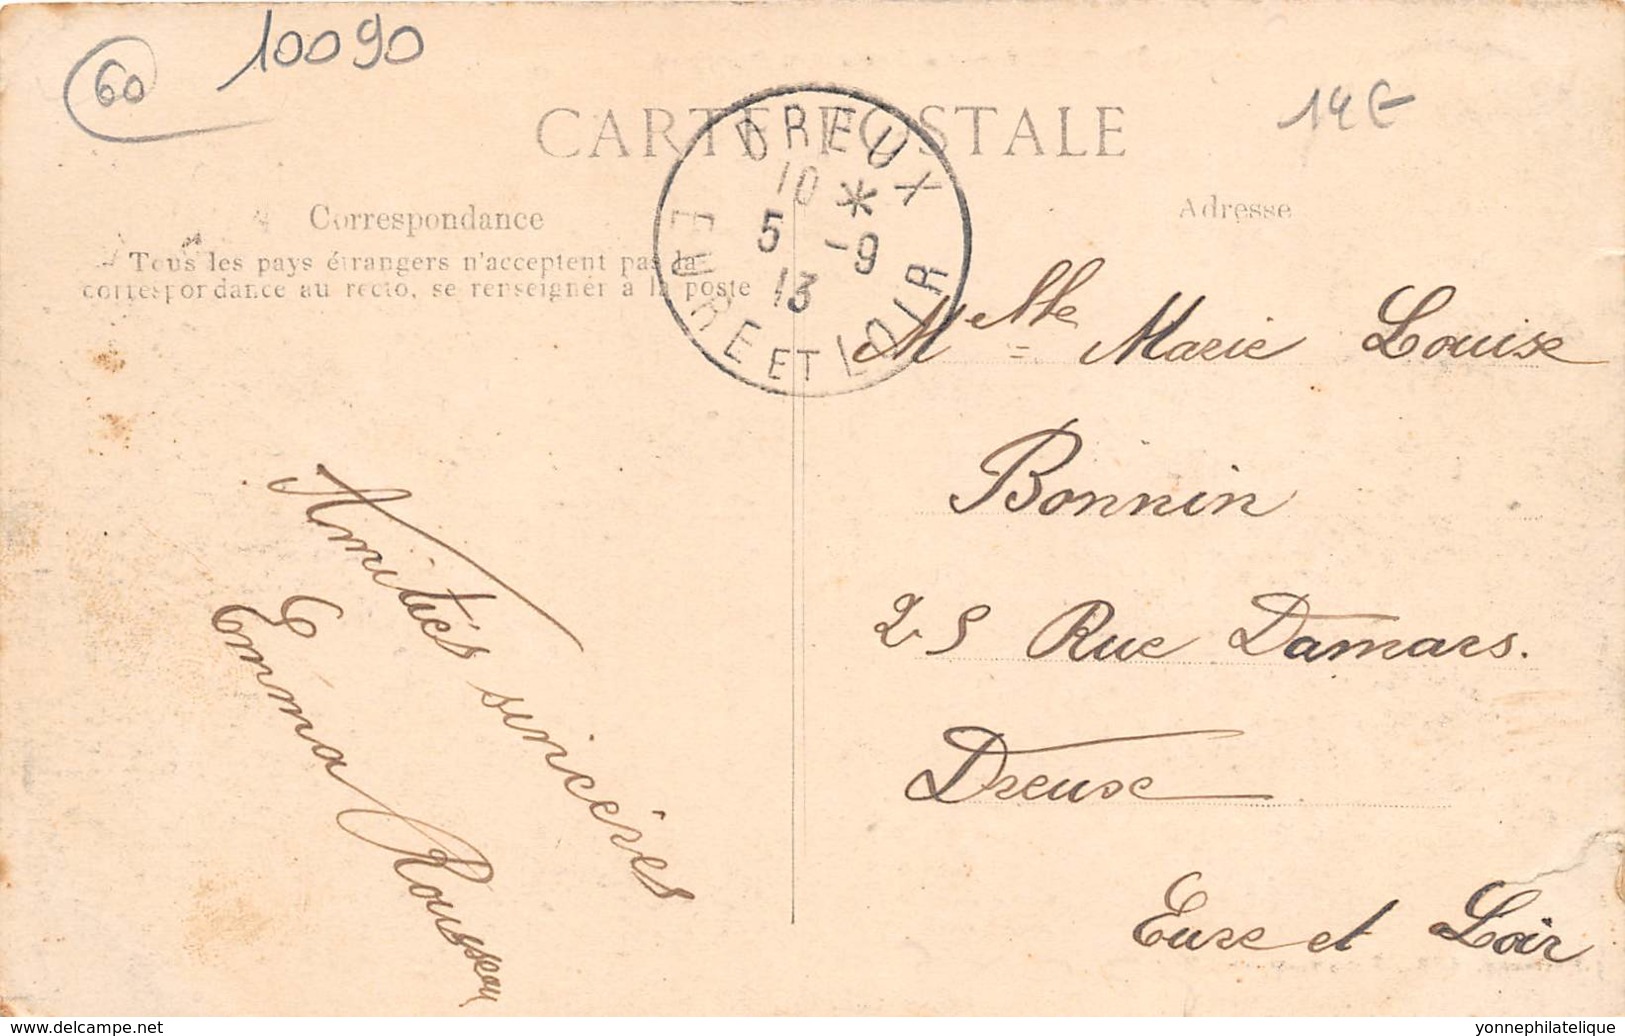 60
10090
14€
CARTE POSTALE
DREUX
10 *
5 -9
13
EURE ET LOIR
Correspondance
Tous les pays étrangers n'acceptent pas la
correspondance au recto, se renseigner à la poste
Adresse
Melle Marie Louise
Bonnin
25 Rue Damars.
Dreux
Eure et Loir
Amitiés sincères
Emma Rousseau
www.delcampe.net
yonnephilatelique